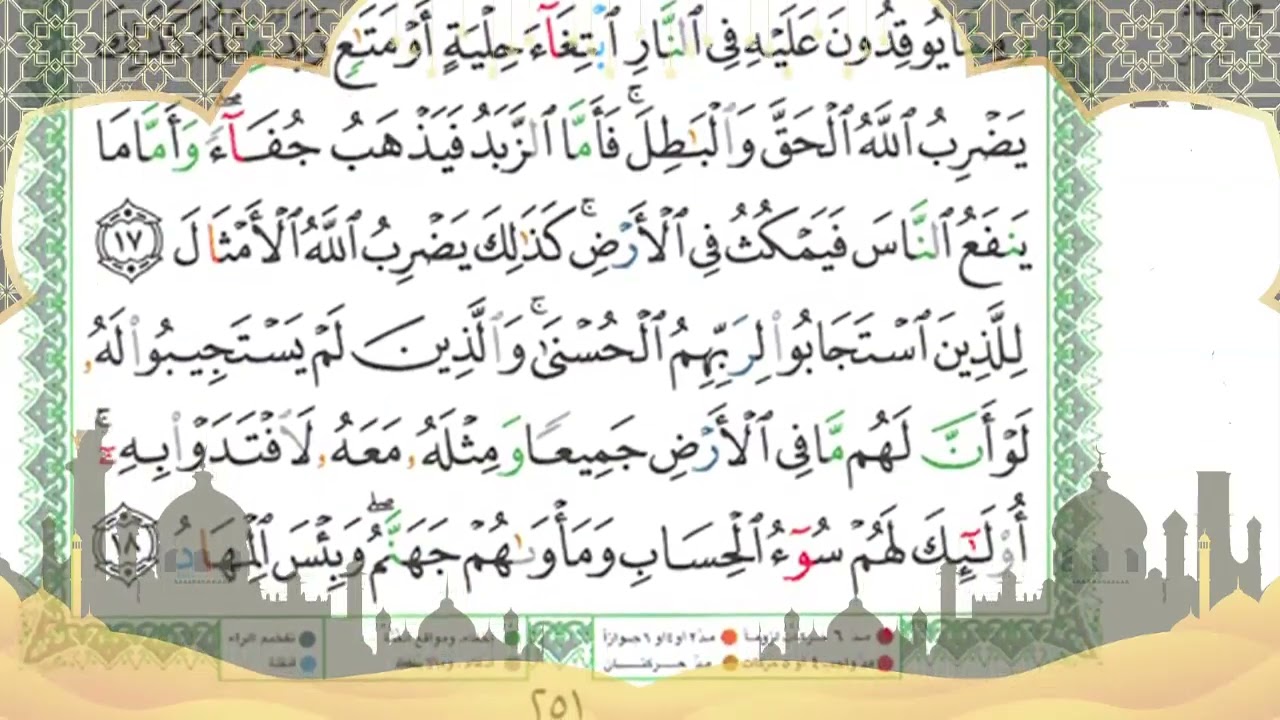 يُوقِدُونَ عَلَيْهِ فِى ٱلنَّارِ ٱبْتِغَآءَ حِلْيَةٍ أَوْ مَتَٰعٍ زَبَدٌ مِّثْلُهُۥ كَذَٰلِكَ
يَضْرِبُ ٱللَّهُ ٱلْحَقَّ وَٱلْبَٰطِلَ ۚ فَأَمَّا ٱلزَّبَدُ فَيَذْهَبُ جُفَآءً ۖ وَأَمَّا مَا
يَنفَعُ ٱلنَّاسَ فَيَمْكُثُ فِى ٱلْأَرْضِ ۚ كَذَٰلِكَ يَضْرِبُ ٱللَّهُ ٱلْأَمْثَالَ ١٧
لِلَّذِينَ ٱسْتَجَابُوا۟ لِرَبِّهِمُ ٱلْحُسْنَىٰ ۚ وَٱلَّذِينَ لَمْ يَسْتَجِيبُوا۟ لَهُۥ
لَوْ أَنَّ لَهُم مَّا فِى ٱلْأَرْضِ جَمِيعًا وَمِثْلَهُۥ مَعَهُۥ لَٱفْتَدَوْا۟ بِهِۦٓ ۚ
أُو۟لَٰٓئِكَ لَهُمْ سُوٓءُ ٱلْحِسَابِ وَمَأْوَىٰهُمْ جَهَنَّمُ ۖ وَبِئْسَ ٱلْمِهَادُ ١٨
مد ٦ حركات لزوماً مد ٢ او ٤ او ٦ جوازاً تفخيم الراء
مد حركتان قلقلة
٢٥١